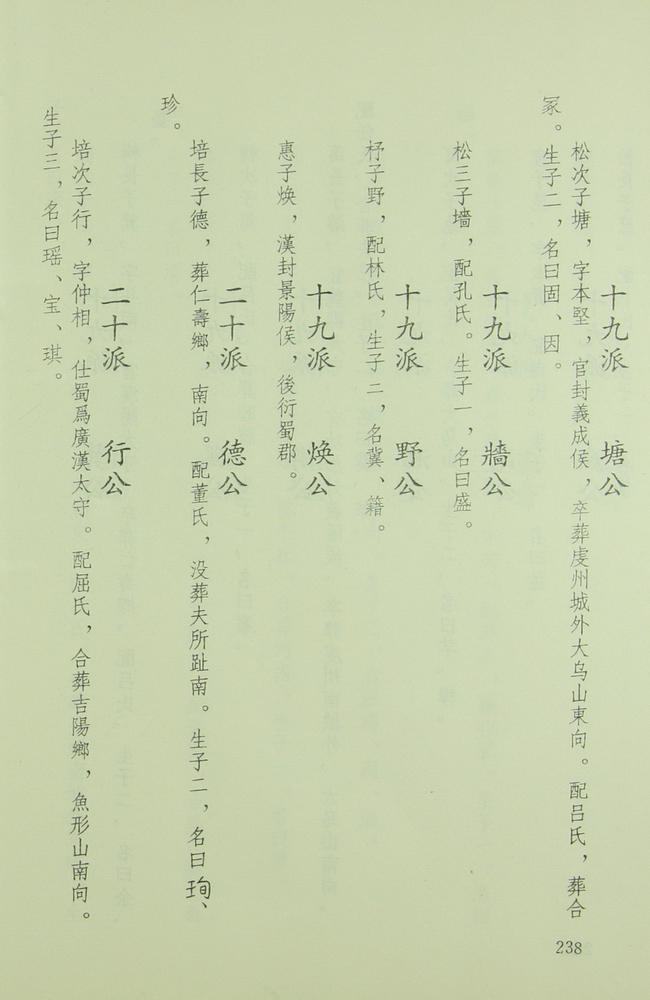 十九派　塘公
松次子塘，字本堅，官封義成侯，卒葬虔州城外大乌山東向。配吕氏，葬合
冢。生子二，名曰固、因。
十九派　牆公
松三子墻，配孔氏。生子一，名曰盛。
十九派　野公
杼子野，配林氏，生子二，名冀、籍。
十九派　焕公
惠子焕，漢封景陽侯，後衍蜀郡。
二十派　德公
培長子德，葬仁壽鄉，南向。配董氏，没葬夫所趾南。生子二，名曰珣、
珍。
二十派　行公
培次子行，字仲相，仕蜀爲廣漢太守。配屈氏，合葬吉陽鄉，魚形山南向。
生子三，名曰瑶、宝、琪。
238